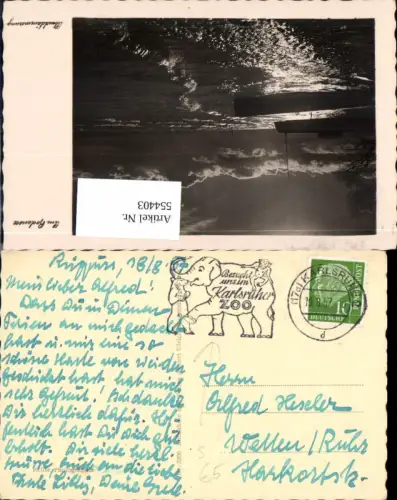 Am Bodensee
Artikel Nr.
554403
Rüppurr, 18/8
Mein lieber Alfred!
Dass Du in Deinen
Ferien an mich gedacht
hast u. mir eine so
schöne Karte
geschickt hast, hat mich
sehr gefreut. Ich danke
Dir herzlich dafür. Hof-
fentlich hast Du Dich gut
erholt. Dir viele herzl.
Grüsse an die liebe
Tante Deine Grete.
Besucht
uns im
Karlsruher
ZOO
(17a) KARLSRUHE
d
10
DEUTSCHE
POST
Herrn
Alfred Heseler
Wetten/Ruhr
Harkortstr.
65